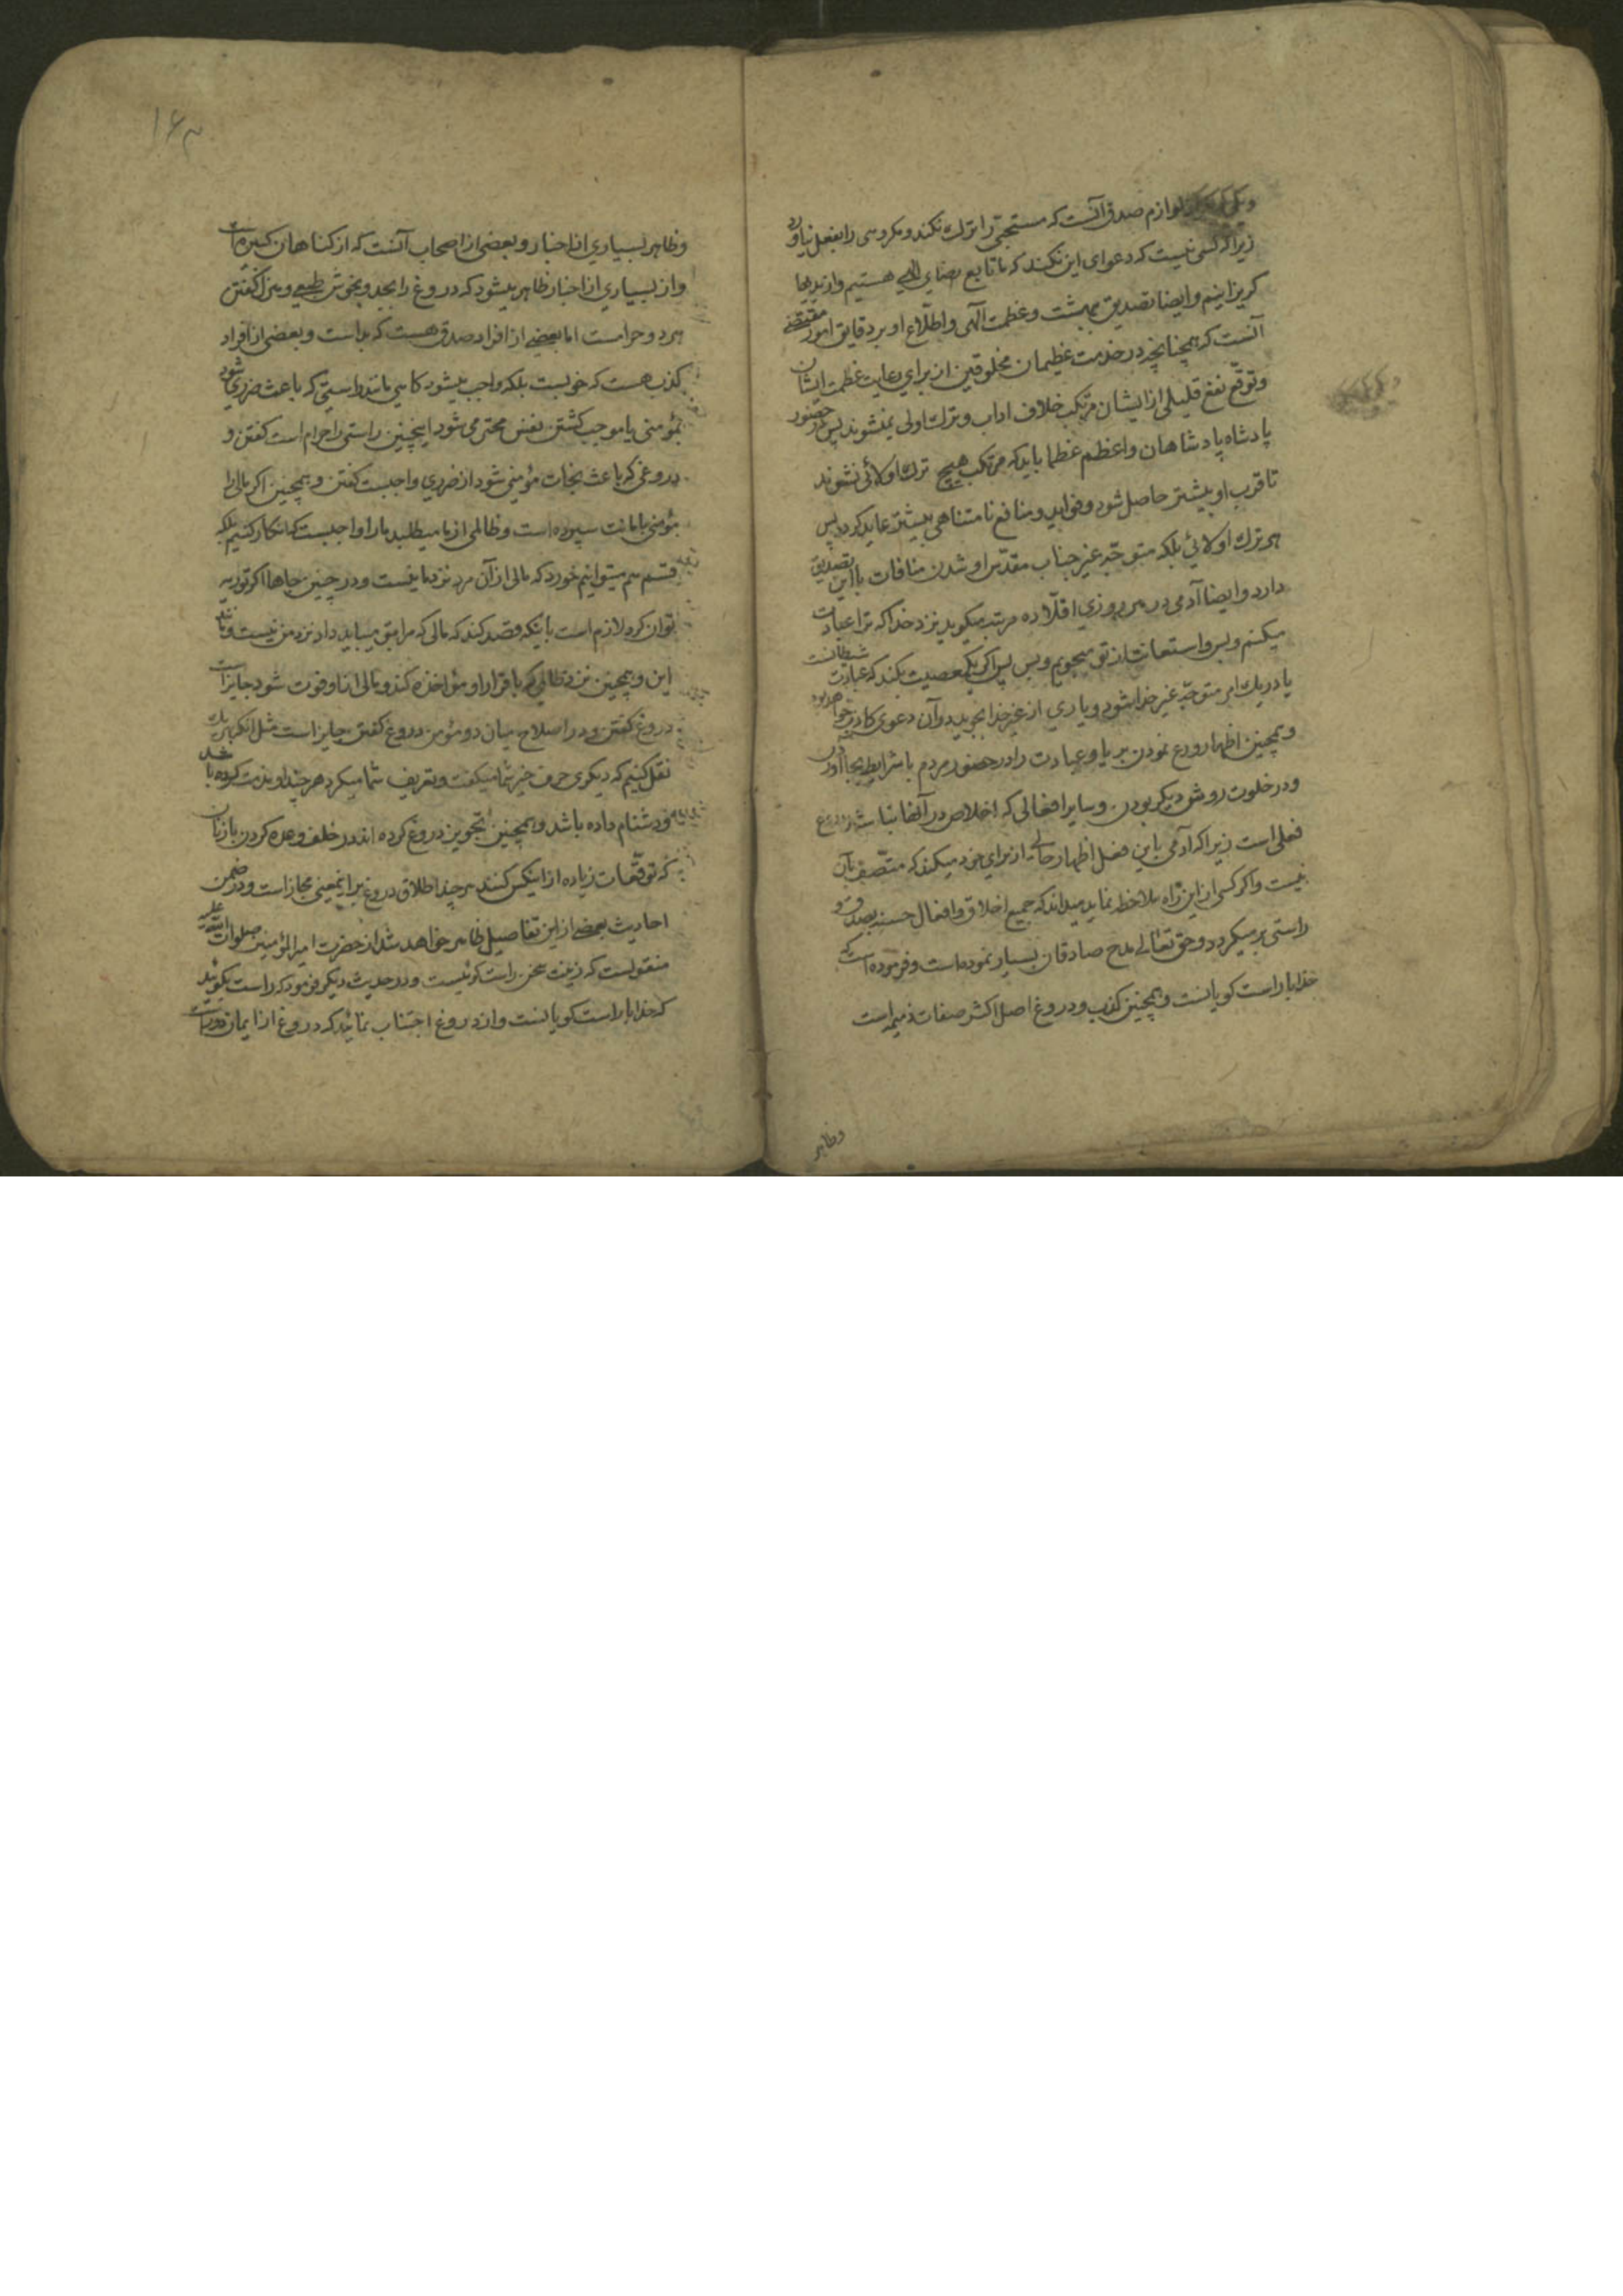 لوازم صدق آنست که مستحبی را ترك نکند و مکروهی را بفعل نیاورد
زیرا که کسی نیست که دعوای این نکند که ما تابع رضای الهی هستیم و از بدیها
گریزانیم و ایضا تصدیق ببهشت و عظمت الهی و اطلاع او بر دقایق امور مقتضی
آنست که همچنانچه در خدمت عظیمان مخلوقین از برای رعایت عظمت ایشان
و توقع نفع قلیلی از ایشان مرتکب خلاف اداب و ترك اولی نمیشوند پس در حضور
پادشاه پادشاهان و اعظم عظما باید که مرتکب هیچ ترك اولائی نشوند
تا قرب او بیشتر حاصل شود و فواید و منافع نامتناهی بیشتر عاید کردد پس
هر ترك اولائی بلکه متوجه غیر جناب مقدس او شدن منافات با این تصدیق
دارد و ایضا آدمی در هر روزی اقلا ده مرتبه میکوید نزد خدا که ترا عبادت
میکنم و بس و استعانت از تو میجویم و بس پس اکر یك معصیت بکند که عبادت شیطانست
یا در یك امر متوجه غیر خدا شود و یاری از غیر خدا بجوید در آن دعوی کاذب خواهد بود
و همچنین اظهار ورع نمودن بریا و عبادت را در حضور مردم با شرایط بجا آوردن
و در خلوت روش دیکر بودن و سایر افعالی که اخلاص در آنها نباشد دروغ
فعلی است زیرا که آدمی باین فعل اظهار حالی از برای خود میکند که متصف بآن
نیست و اکر کسی از این راه ملاحظه نماید میداند که جمیع اخلاق و افعال حسنه بصدق و
راستی بر میکردد و حق تعالی مدح صادقان بسیار نموده است و فرموده است که
خدا با راست کویانست و همچنین کذب و دروغ اصل اکثر صفات ذمیمه است
وظاهر
۱۶۳
وظاهر بسیاری از اخبار و بعضی از اصحاب آنست که از کناهان کبیره است
و از بسیاری از اخبار ظاهر میشود که دروغ را بجد و بخوش طبعی و هزل کفتن
هر دو حرامست اما بعضی از افراد صدق هست که بد است و بعضی از افراد
کذب هست که خوبست بلکه واجب میشود کاهی مانند راستی که باعث ضرری شود
بمؤمنی یا موجب کشتن نفس محترمی شود اینچنین راستی را حرام است کفتن و
دروغی که باعث نجات مؤمنی شود از ضرری واجبست کفتن و همچنین اکر مالی را
مؤمنی بامانت سپرده است و ظالمی از ما میطلبد ما را واجبست که انکار کنیم بلکه
قسم هم میتوانیم خورد که مالی از آن مرد نزد ما نیست و در چنین جاها اکر توریه
توان کرد لازم است باینکه قصد کند که مالی که مرا بتو میباید داد نزد من نیست و مانند
این و همچنین نزد ظالمی که باقرار او مؤاخذه کند و مالی از او فوت شود جایز است
دروغ کفتن و در اصلاح میان دو مؤمن دروغ کفتن جایز است مثل آنکه بهر یك
نقل کنیم که دیکری حرف خیر شما میکفت و تعریف شما میکرد هر چند او مذمت کرده باشد
و دشنام داده باشد و همچنین تجویز دروغ کرده اند در خلف وعده کردن با زنان
که توقعات زیاده از اینکس کنند هر چند اطلاق دروغ بر اینمعنی مجاز است و در ضمن
احادیث بعضی از این تفاصیل ظاهر خواهد شد از حضرت امیر المؤمنین صلوات الله علیه
منقولست که زینت سخن راست کوئیست و در حدیث دیکر فرمود که راست بکوئید
که خدا با راست کویانست و از دروغ اجتناب نمائید که دروغ از ایمان دور است